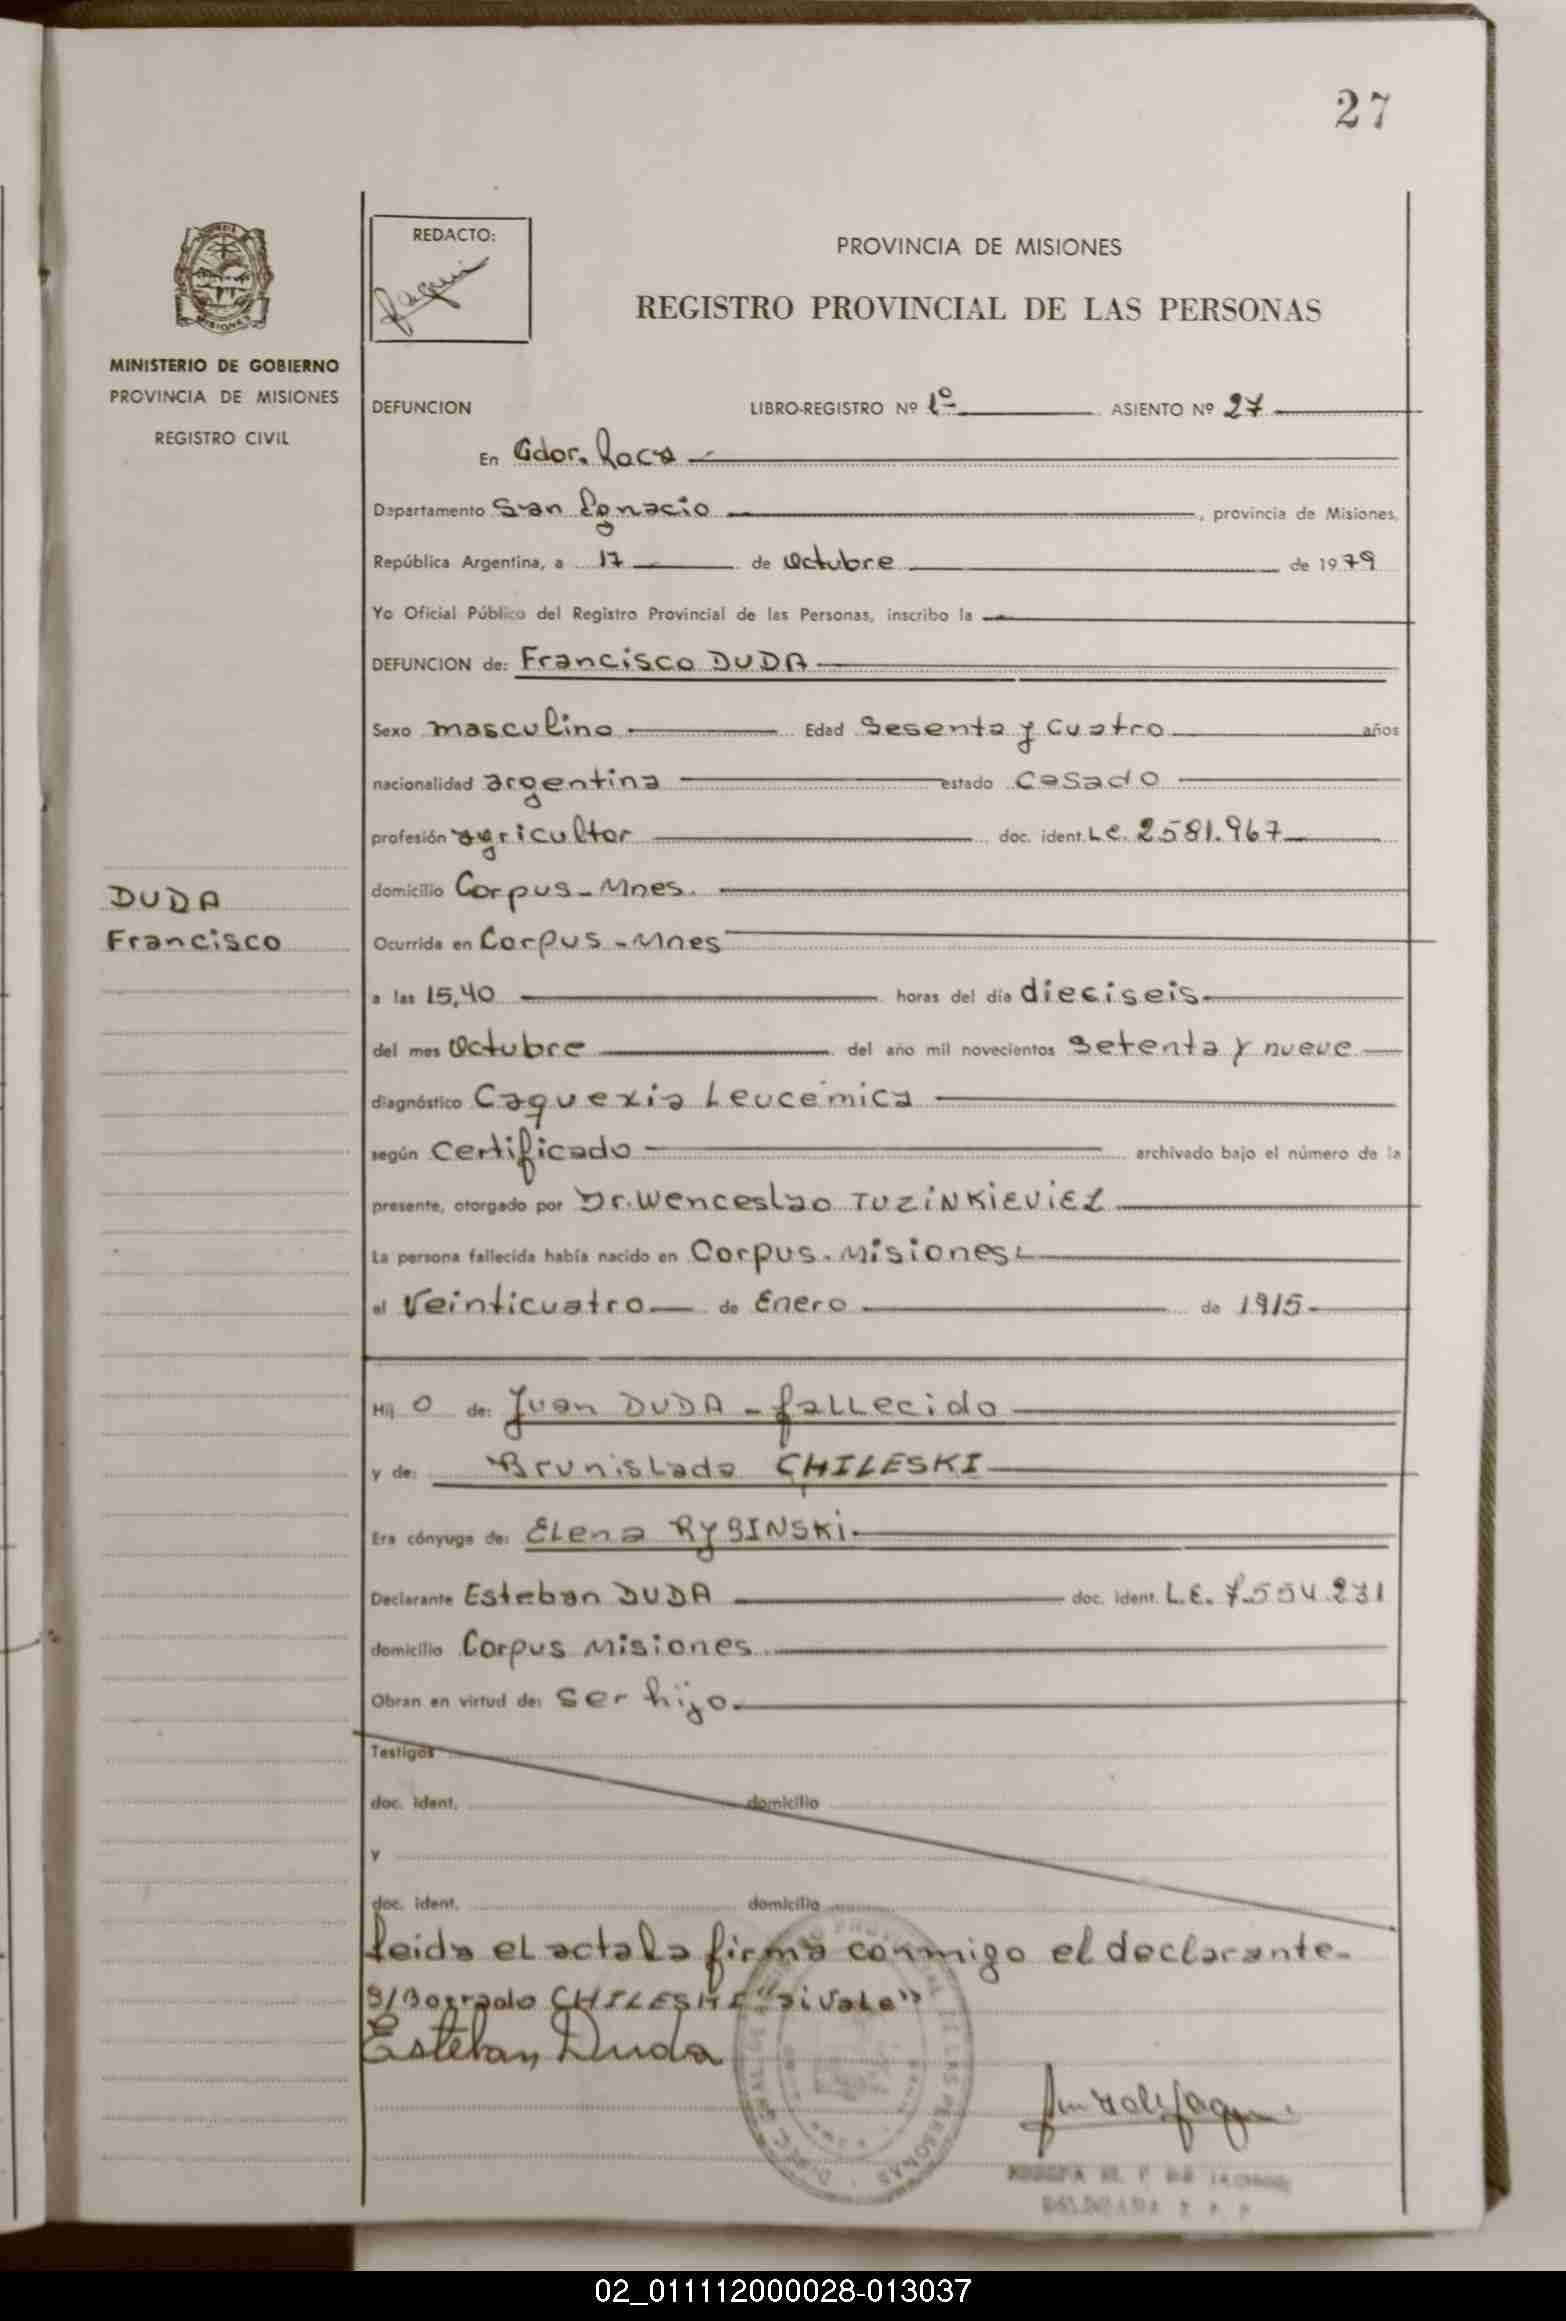 27
REDACTO:
PROVINCIA DE MISIONES
REGISTRO PROVINCIAL DE LAS PERSONAS
MINISTERIO DE GOBIERNO
PROVINCIA DE MISIONES
REGISTRO CIVIL
DEFUNCION LIBRO-REGISTRO Nº 1º ASIENTO Nº 27
En Gdor. Roca
Departamento San Ignacio, provincia de Misiones,
República Argentina, a 17 de Octubre de 1979
Yo Oficial Público del Registro Provincial de las Personas, inscribo la
DEFUNCION de: Francisco DUDA
Sexo masculino Edad Sesenta y Cuatro años
nacionalidad argentina estado Casado
profesión agricultor doc. ident. L.E. 2581.967
domicilio Corpus-Mnes.
DUDA
Francisco
Ocurrida en Corpus-Mnes
a las 15,40 horas del día dieciseis
del mes Octubre del año mil novecientos setenta y nueve
diagnóstico Caquexia Leucemica
según Certificado archivado bajo el número de la
presente, otorgado por Dr. Wenceslao TUZINKIEVIEZ
La persona fallecida había nacido en Corpus-Misiones
el Veinticuatro de Enero de 1915
Hij o de: Juan DUDA - fallecido
y de: Brunislada CHILESKI
Era cónyuge de: Elena RYBINSKI
Declarante Esteban DUDA doc. ident. L.E. 7.554.231
domicilio Corpus Misiones
Obran en virtud de: ser hijo
Testigos
doc. ident. domicilio
y
doc. ident. domicilio
leida el acta la firma conmigo el declarante-
S/Borrado CHILESKI "si vale"
Esteban Duda
02_011112000028-013037